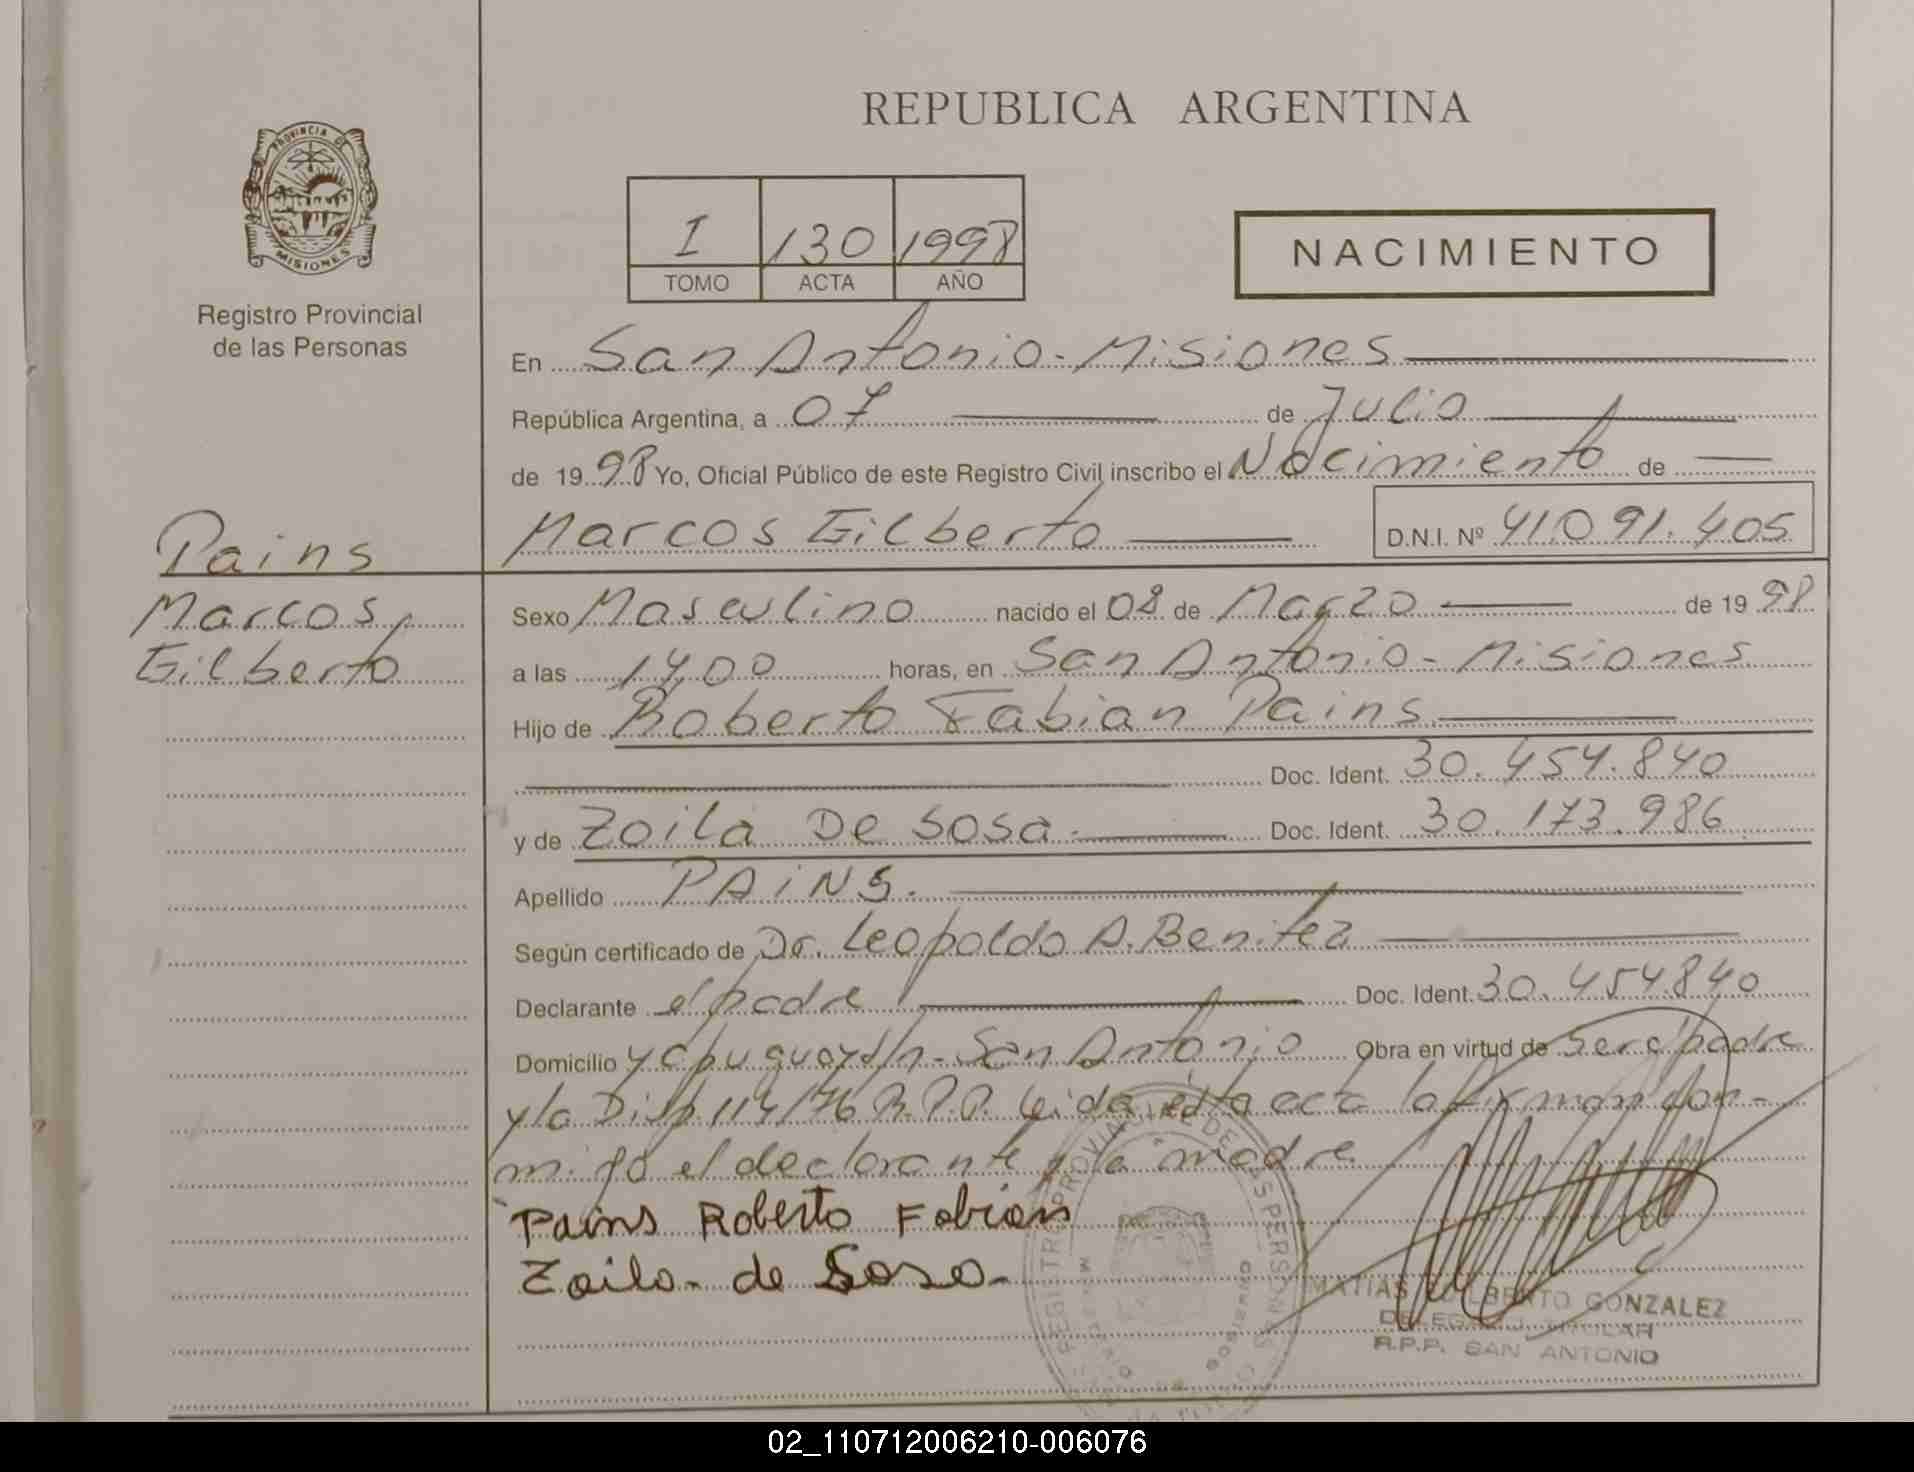 PROVINCIA DE
MISIONES
Registro Provincial
de las Personas
REPUBLICA ARGENTINA
I 130 1998
TOMO ACTA AÑO
NACIMIENTO
En San Antonio - Misiones
República Argentina, a 07 de Julio
de 1998 Yo, Oficial Público de este Registro Civil inscribo el Nacimiento de
Pains
Marcos Gilberto D.N.I. Nº 41.091.405
Marcos,
Gilberto
Sexo Masculino nacido el 08 de Marzo de 1998
a las 14,00 horas, en San Antonio - Misiones
Hijo de Roberto Fabian Pains
Doc. Ident. 30.454.840
y de Zoila De Sosa Doc. Ident. 30.173.986
Apellido PAINS.
Según certificado de Dr. Leopoldo A. Benitez
Declarante el padre Doc. Ident. 30.454.840
Domicilio Yapuguay s/n - San Antonio Obra en virtud de ser el padre
y la Disp. 114/76 R.P.P. leida esta acta la firman con-
migo el declarante y la madre
Pains Roberto Fabian
Zoila de Sosa
REGISTRO PROVINCIAL DE LAS PERSONAS
MATIAS GONZALEZ
DELEGADO TITULAR
R.P.P. SAN ANTONIO
02_110712006210-006076